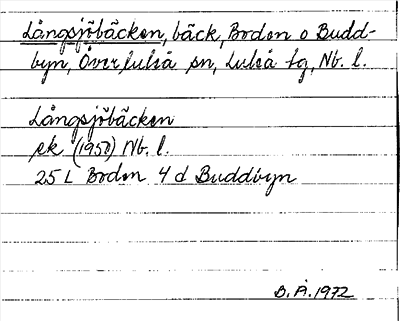 Långsjöbäcken, bäck, Boden o Budd-
byn, Överluleå sn, Luleå tg, Nb. l.
Långsjöbäcken
ek (1950) Nb. l.
25 L Boden 4 d Buddbyn
B. Å. 1972